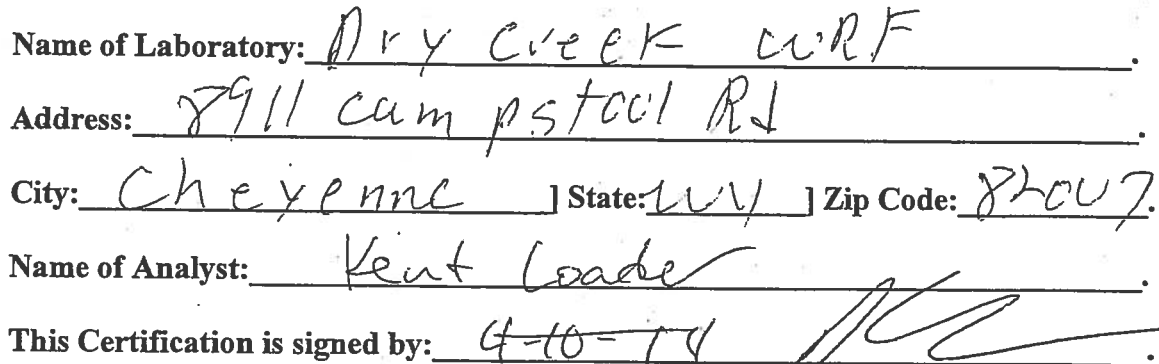 Name of Laboratory: Dry Creek WRF.
Address: 8911 Campstool Rd.
City: Cheyenne ] State: WY ] Zip Code: 82007.
Name of Analyst: Kent Loader.
This Certification is signed by: 4-10-14.